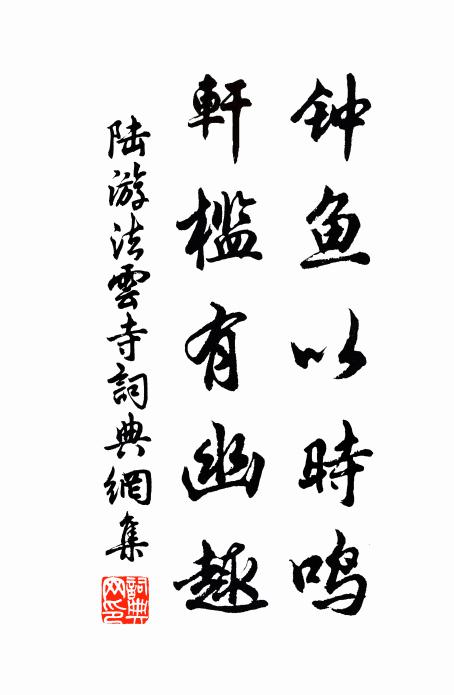 钟鱼以時鸣
軒檻有幽趣
陆游法雲寺詞典網集